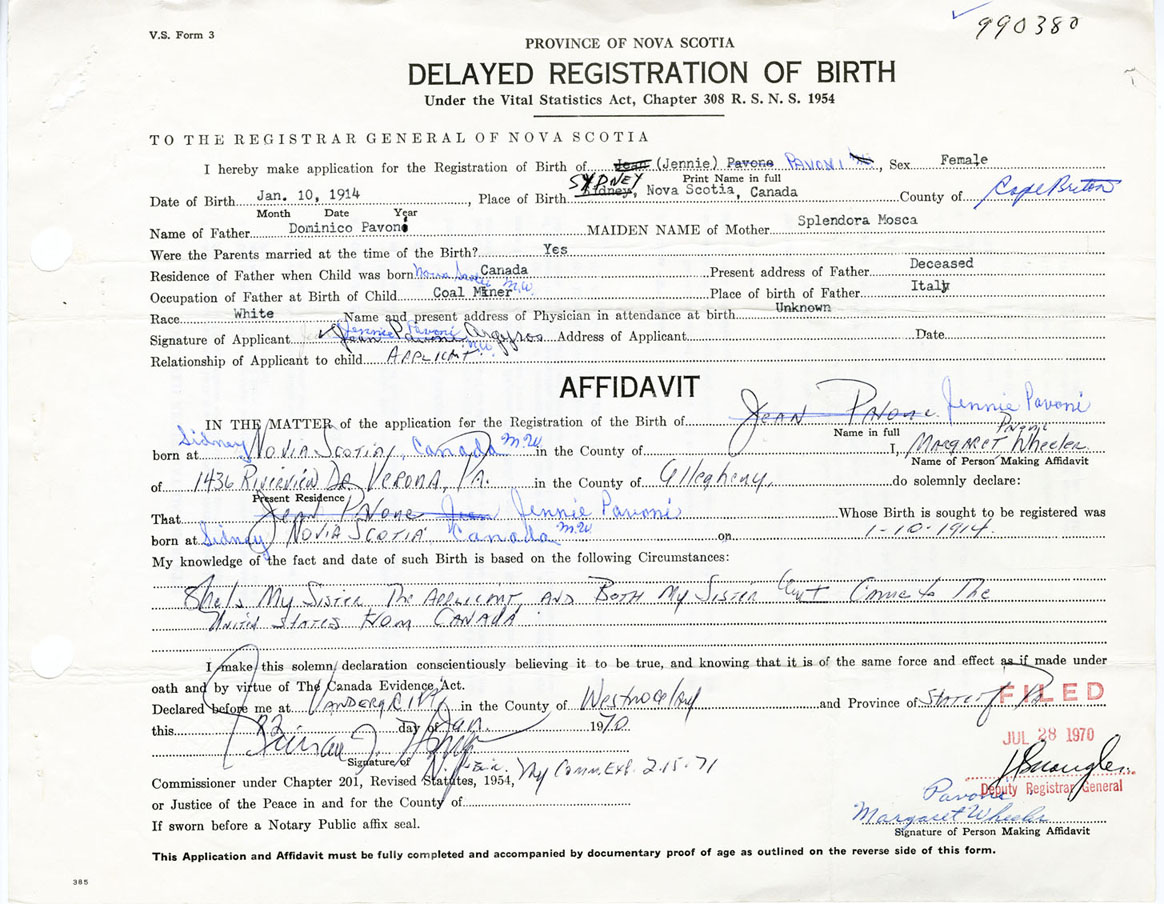 V.S. Form 3
990380
PROVINCE OF NOVA SCOTIA
DELAYED REGISTRATION OF BIRTH
Under the Vital Statistics Act, Chapter 308 R. S. N. S. 1954
TO THE REGISTRAR GENERAL OF NOVA SCOTIA
I hereby make application for the Registration of Birth of Jean (Jennie) Pavone PAVONI, Sex Female
Print Name in full
Date of Birth Jan. 10, 1914, Place of Birth Sidney, SYDNEY Nova Scotia, Canada County of Cape Breton
Month Date Year
Name of Father Dominico Pavoni MAIDEN NAME of Mother Splendora Mosca
Were the Parents married at the time of the Birth? Yes
Residence of Father when Child was born Nova Scotia Canada Present address of Father Deceased
M.W.
Occupation of Father at Birth of Child Coal Miner Place of birth of Father Italy
Race White Name and present address of Physician in attendance at birth Unknown
Signature of Applicant Jennie Pavoni Jean Pavoni Argyros Address of Applicant Date
M.W.
Relationship of Applicant to child APPLICANT
AFFIDAVIT
IN THE MATTER of the application for the Registration of the Birth of Jean Pavone Jennie Pavoni
Name in full
born at Sidney Novia Scotia, Canada M.W. in the County of I, Margaret Pavoni Wheeler
Name of Person Making Affidavit
of 1436 Riverview Dr. Verona, Pa. in the County of Allegheny, do solemnly declare:
Present Residence
That Jean Pavone Jean Jennie Pavoni Whose Birth is sought to be registered was
born at Sidney Novia Scotia Canada M.W. on 1-10-1914.
My knowledge of the fact and date of such Birth is based on the following Circumstances:
She is My Sister The Applicant, and Both My Sister and I Come to The
United States from Canada
I make this solemn declaration conscientiously believing it to be true, and knowing that it is of the same force and effect as if made under
oath and by virtue of The Canada Evidence Act.
Declared before me at Vandergrift, in the County of Westmoreland and Province of State of Pa
FILED
this 22 day of Jan. 1970
JUL 28 1970
Signature of
Commissioner under Chapter 201, Revised Statutes, 1954, My Comm. Exp. 2-15-71
Deputy Registrar General
or Justice of the Peace in and for the County of
Pavoni
Margaret Wheeler
If sworn before a Notary Public affix seal.
Signature of Person Making Affidavit
This Application and Affidavit must be fully completed and accompanied by documentary proof of age as outlined on the reverse side of this form.
385